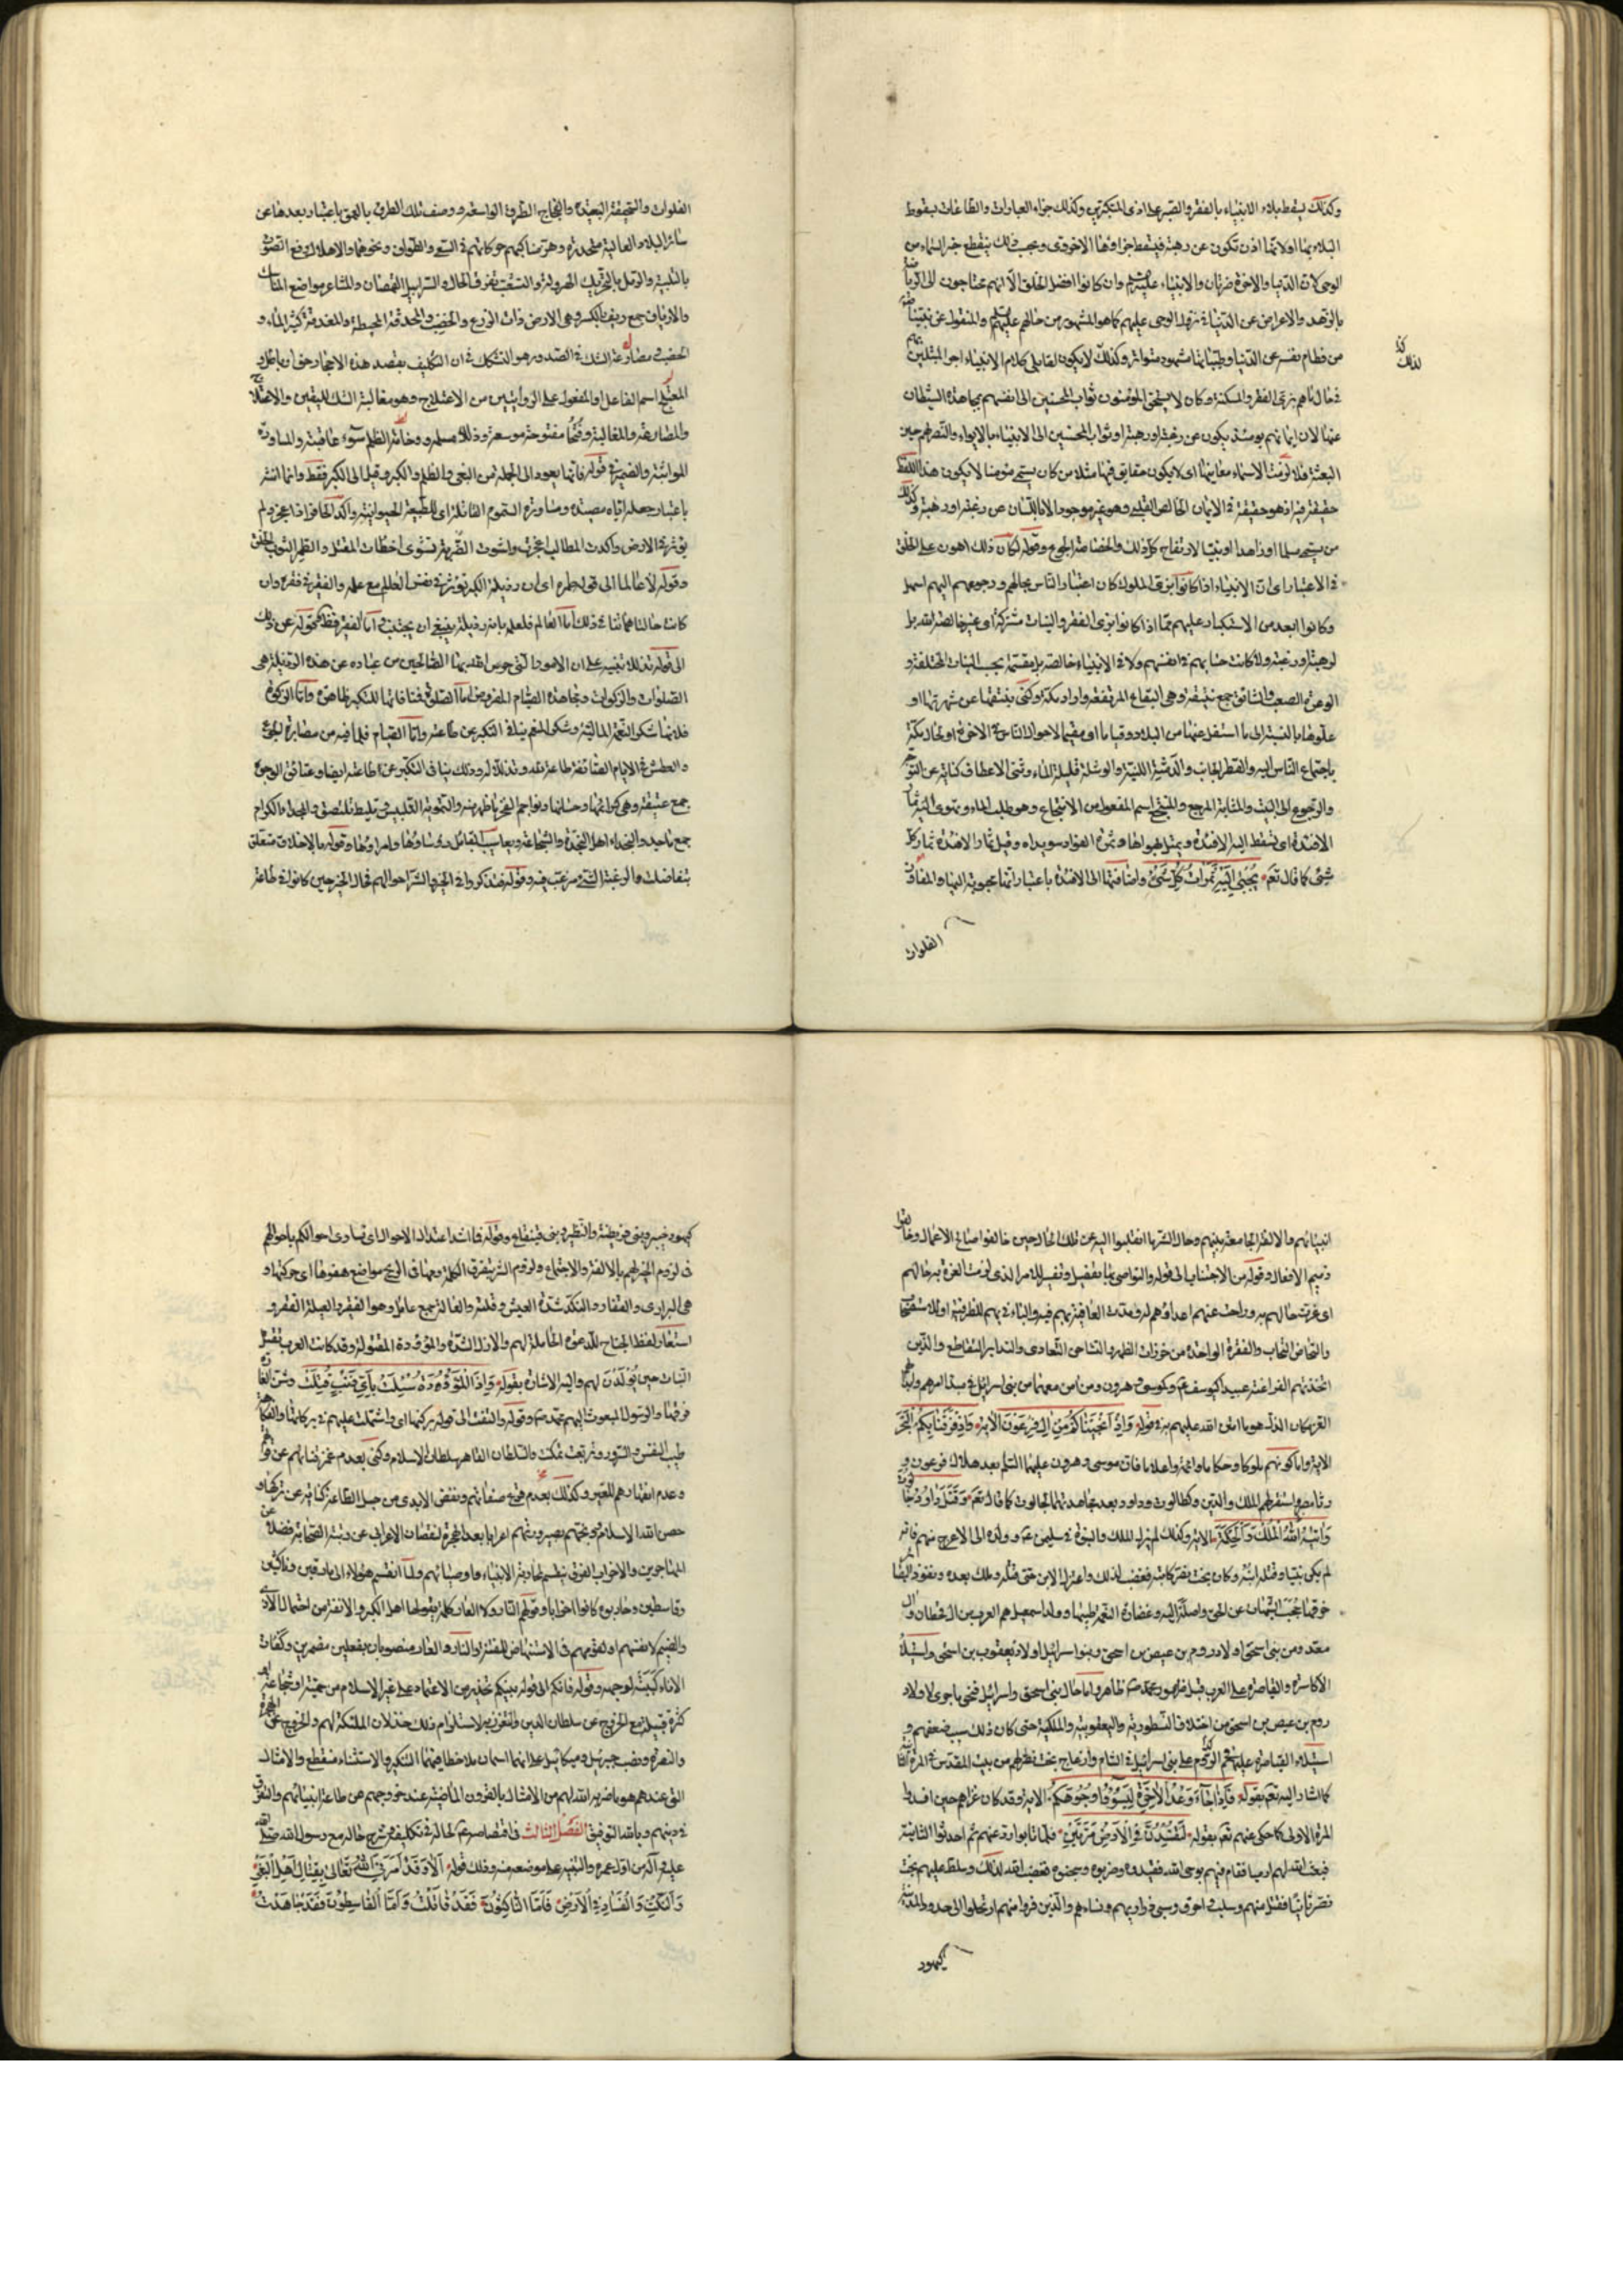 وكذلك يسقط بلاء الانبياء بالفقر والصبر على اذى المتكبرين وكذلك جزاء العبادات والطاعات بسقوط
البلاء بها اولا نها اذن تكون عن رهبة فيسقط جزاؤها الاخروى وبحسب ذلك ينقطع خبر السماء من
الوحى لان الدنيا والاخرة ضرتان والانبياء عليهم وان كانوا افضل الخلق الا انهم محتاجون الى الرياضة
بالزهد والاعراض عن الدنيا فى نزول الوحى عليهم كما هو المشهور من حالهم عليهم والمنقول عن نبينا
من فطام نفسه عن الدنيا وطيباتها مشهود متواتر وكذلك لا يكون لقابلى كلام الانبياء اجر المبتلين
كذا
لذلك
فى حال ناهم بزى الفقر والمسكنة وكان لا يستحق المؤمنون ثواب المحسنين الى انفسهم بمجاهدة الشيطان
عنها لان ايمانهم يومئذ يكون عن رغبة اورهبة او ثواب المحسنين الى الانبياء بالايواء والنصر لهم حين
البعثة فلا لزمت الاسماء معانيها اى لا يكون حقايق فيها مثلا من كان يسمى مؤمنا لا يكون هذا اللفظ
حقيقة فيه اذ هو حقيقة فى الايمان الخالص القلبى وهو غير موجود الا باللسان عن رغبة اورهبة وكذلك
من يسمى مسلما اوزاهدا اونبيا لارتفاع كل ذلك والخصاصة الجوع وقوله لكان ذلك اهون على الخلق
فى الاعتبار اى ان الانبياء اذا كانوا بزى الملوك كان اعتبار الناس بحالهم ورجوعهم اليهم اسهل
وكانوا ابعد من الاستكبار عليهم مما اذا كانوا بزى الفقر والنيات مشتركة اى غير خالصة لله بل
لرهبة ورغبة ولا كانت حسناتهم فى انفسهم ولا فى الانبياء خالصة بل مقتسمة بحسب النيات المختلفة و
الوعر الصعب والنتائق جمع نتيقة وهى البقاع المرتفعة واراد مكة وكنى بنتقها عن شهرتها او
علوها بالنسبة الى ما استفل عنها من البلاد وقياما او مقيما لاحوال الناس فى الاخرة او بحال مكة
باجتماع الناس اليه والقطر الجانب والدمثة اللينة والوشلة قليلة الماء وثنى الاعطاف كناية عن التوجه
والرجوع الى البيت والمثابة المرجع والمنتجع اسم المفعول من الانتجاع وهو طلب الماء وتهوى اليه ثمار
الافئدة اى تسقط اليه الافئدة وتميل بهواها وثمرة الفؤاد سويداه وقيل ثمار الافئدة ثمار كل
شئ كما قال تعم يجبى اليه ثمرات كل شئ واضافتها الى الافئدة باعتبار انها محبوبة اليها والمفاوز
الفلوات
الفلوات والسحيقة البعيدة والفجاج الطرق الواسعة ووصف تلك الطرق بالعمق باعتبار بعدها عن
سائر البلاد العالية منحدرة وهز مناكبهم حركاتهم فى السعى والطواف ونحوهما والاهلال رفع الصوت
بالتلبية والرمل بالتحريك الهرولة والشعث تفرق الحال والسرابيل القمصان والمشاعر مواضع المناسك
والارياف جمع ريف بالكسر وهى الارض ذات الزرع والخصب والمحدقة المحيطة والمغدقة كثيرة الماء و
الخصب ومضارعة الشك فى الصدور هو التشكك فى ان التكليف بقصد هذه الاحجار حق او باطل و
المعتلج اسم الفاعل او المفعول على الروايتين من الاعتلاج وهو مغالبة الشك لليقين والاعتلاج
والمصارعة والمغالبة وفتحا مفتوحة موسعة وذللا مسهلة ووخامة الظلم سوء عاقبته والمساورة
المواثبة والضمير فى قوله فانها يعود الى الجملة من البغى والظلم والكبر وقيل الى الكبر فقط وانما انث
باعتبار جعله اياه مصيدة ومساورة السموم القاتلة اى للطبيعة الحيوانية واكدى الحافر اذا عجز ولم
يؤثر فى الارض واكدت المطالب اعجزت واشوت الضربة تشوى اخطات المقتل والطمر الثوب الخلق
وقوله لا عالما الى قوله طمره اى ان رذيلة الكبر تؤثر فى نفس العالم مع علمه والفقير فى فقره وان
كانت حالتاهما تنافى ذلك اما العالم فلعلمه بانه رذيلة ينبغى ان يجتنب واما الفقير فقط وقوله عن ذلك
الى قوله تذللا تنبيه على ان الامور التى حرس الله بها الصالحين من عباده عن هذه الرذيلة هى
الصلوات والزكوات ومجاهدة الصيام المفروض اما الصلوة فمنافاتها للتكبر ظاهرة واما الزكوة
فلانها شكر النعمة المالية وشكر المنعم ينافى التكبر عن طاعته واما الصيام فلما فيه من مصابرة الجوع
والعطش فى الايام الصائفة طاعة لله وتذللا له وذلك ينافى التكبر عن طاعته ايضا وعتائق الوجوه
جمع عتيقة وهى كرائمها وحسانها ونواجم الفخر ما ظهر منه والتمويه التلبيس وتليط تلتصق والمجداء الكرام
جمع ماجيد والنجداء اهل النجدة والشجاعة ويعاسيب القبائل رؤساؤها وامراؤها وقوله بالاخلاق متعلق
بتفاضلت والرغيبة الشئ يرغب فيه وقوله فتذكروا فى الخير والشر احوالهم فحال الخير حين كانوا فى طاعة
انبيائهم والالفة الجامعة بينهم وحال الشر ما انقلبوا اليه عن تلك الحال حين خالفوا صالح الاعمال وخافوا
ذميم الافعال وقوله من الاجتناب الى قوله والتواصى بها تفصيل وتفسير للامر الذى لزمت العزة به حالهم
اى عزت حالهم به وزاحت عنهم اعداؤهم له ومدت العافية بهم فيه والباء فى بهم للظرفية او للاستصحاب
والتحاض التحاث والفقرة الواحدة من خرزات الظهر والتشاحن التعادى والتدابر التقاطع والذين
اتخذتهم الفراعنة عبيدا كيوسف عم وكموسى وهرون ومن امن معهما من بنى اسرائيل فى مبدأ امرهم ولباس
العز مكان الذل هو ما امتن الله عليهم به فى قوله واذ انجيناكم من ال فرعون الاية واذ فرقنا بكم البحر
الاية واما كونهم ملوكا وحكاما وائمة واعلاما فان موسى وهرون عليهما السلم بعد هلاك فرعون و
رثا مصر واستقر لهم الملك والدين وكطالوت وداود بعد مجاهدتهما لجالوت كما قال تعم وقتل داود جالوت
واتيه الله الملك والحكمة الاية وكذلك لم يزل الملك والنبوة فى سليمن عم وولده الى الاعرج منهم فانه
لم يكن نبيا وقتله ابنه وكان بخت نصر كاتبه فغضب لذلك واغتال الابن حتى قتله وملك بعده ونفوذ البصائر
خرقها حجب الشبهات عن الحق واصلة اليه وغضارة النعمة طيبها وولد اسمعيل هم العرب من ال قحطان وال
معد ومن بنى اسحق اولاد روم بن عيص بن اسحق وبنو اسرائيل اولاد يعقوب بن اسحق واستيلاء
الاكاسرة والقياصرة على العرب قبل ظهور محمد ص ظاهر واما حال بنى اسحق واسرائيل فنحو ما جرى لاولاد
روم بن عيص بن اسحق من اختلاف النسطورية واليعقوبية والملكية حتى كان ذلك سبب ضعفهم و
استيلاء القياصرة عليهم فى الروم على بنى اسرائيل فى الشام وازعاج بخت نصر لهم من بيت المقدس فى المرة الثانية
كما اشار اليه تعم بقوله فاذا جاء وعد الاخرة ليسوؤا وجوهكم الاية وقد كان غزاهم حين افسدوا
المرة الاولى كما حكى عنهم تعم بقوله لتفسدن فى الارض مرتين فلما تابوا رده عنهم ثم احدثوا الثانية
فبعث الله لهم ارميا فقام فيهم بوحى الله فقيدوه وضربوه وسجنوه فغضب الله لذلك وسلط عليهم بخت
نصر ثانيا فقتل منهم وصلب واحرق وسبى ذراريهم ونساءهم والذين فروا منهم ارتحلوا الى حدود المدينة
كيهود
كيهود خيبر وبنى قريظة والنضير وبنى قينقاع وقوله فما اشد اعتدال الاحوال اى تساوى احوالكم باحوالهم
فى لزوم الخير لهم بالالفة والاجتماع ولزوم الشر بتفرق الكلمة ومهافى الريح مواضع هفوها اى حركتها و
هى البرارى والقفار والنكد شدة العيش وقلته والعالة جمع عائل وهو الفقير والعيلة الفقر و
استعار لفظ الجناح للدعوة الحاملة لهم والازل الشدة والموؤدة المقتولة وقد كانت العرب تقتل
البنات حين يولدن لهم واليه الاشارة بقوله واذا الموؤدة سئلت باى ذنب قتلت وشن الغارة
فرقها والرسول المبعوث اليهم محمد ص وقوله والتفت الى قوله بركتها اى واشتملت عليهم فى بركاتها والفكاهة
طيب النفس والسرور وتربعت تمكنت والسلطان القاهر سلطان الاسلام وكنى بعدم غمز قناتهم عن قوتهم
وعدم انقهارهم للغير وكذلك بعدم قرع صفاتهم ونفض الايدى من حبل الطاعة كناية عن تركها و
حصن الله الاسلام وبختهم بصيرورتهم اعرابا بعد الهجرة لنقصان الاعرابى عن رتبة الصحابة فضلا عن
المهاجرين والاحزاب الفرق ينقسم لمحاربة الانبياء واوصيائهم ولما انقسم هؤلاء الى مارقين وناكثين
وقاسطين وحاربوه كانوا احزابا وقولهم النار ولا العار كلمة يقولها اهل الكبر والانفة من احتمال الاذى
والضيم لانفسهم او لقومهم فى الاستنهاض للفتنة والنار والعار منصوبان بفعلين مضمرين وكفأت
الاناء كببته لوجهه وقوله فانكم الى قوله بينكم تحذير من الاعتماد على غير الاسلام من حمية او شجاعة او
كثرة قبيلة مع الخروج عن سلطان الدين والتعزز به لاستلزام ذلك خذلان الملئكة لهم والخروج عن الهجرة
والنصرة ونصب جبرئيل وميكائيل على انهما اسمان ملاحظا فيهما التنكير والاستثناء منقطع والامثال
التى عندهم هو ما ضربه الله لهم من الامثال بالقرون الماضية عند خروجهم من طاعة انبيائهم والتفرق
فى دينهم وبالله التوفيق الفصل الثالث فى اقتصاصه عم لحاله فى تكليفه وشرح حاله مع رسول الله صلى الله
عليه وآله من اول عمره والتنبيه على موضعه منه وذلك قوله الا وقد امرنى الله تعالى بقتال اهل البغى
والنكث والفساد فى الارض فاما الناكثون فقد قاتلت واما القاسطون فقد جاهدت